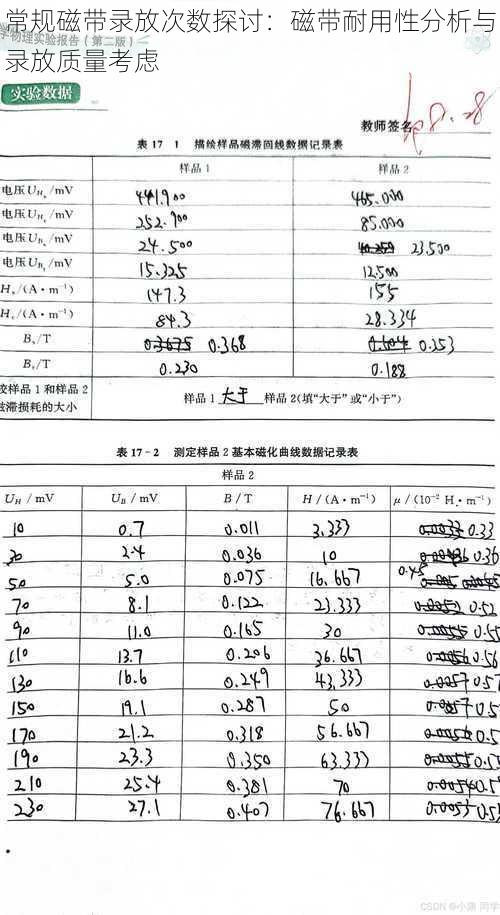 常规磁带录放次数探讨：磁带耐用性分析与
录放质量考虑
学物理实验报告（第二版）
实验数据
教师签名
8.28
表 17-1 描绘样品磁滞回线数据记录表
样品 1 样品 2
电压 U /mV 441.900 465.000
电压 U /mV 252.900 85.000
电压 U /mV 24.500 23.500
电压 U /mV 15.325 12.500
H /(A·m⁻¹) 147.3 155
H /(A·m⁻¹) 84.3 28.334
B /T 0.3675 0.368 0.253
B /T 0.230 0.188
较样品 1 和样品 2
磁滞损耗的大小
样品 1 大于 样品 2(填“大于”或“小于”)
表 17-2 测定样品 2 基本磁化曲线数据记录表
样品 2
U_H /mV U_B /mV B/T H/(A·m⁻¹) μ/(10⁻² H·m⁻¹)
10 0.7 0.011 3.333 0.0033 0.33
30 2.4 0.036 10 0.36
50 5.0 0.075 16.667 0.45
70 8.1 0.122 23.333 0.0052 0.52
90 11.0 0.165 30 0.0055 0.55
110 13.7 0.206 36.667 0.0056 0.56
130 16.6 0.249 43.333 0.0057 0.57
150 19.1 0.287 50 0.0057 0.5
170 21.2 0.318 56.667 0.0056 0.5
190 23.3 0.350 63.333 0.0055 0.5
210 25.4 0.381 70 0.0054 0.5
230 27.1 0.407 76.667 0.0053 0.53
CSDN @小康 同学